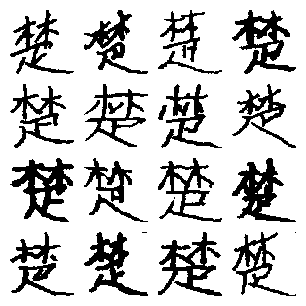 楚楚楚楚
楚楚楚楚
楚楚楚楚
楚楚楚楚